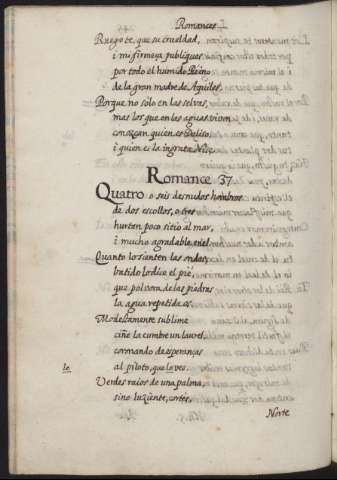 Romances
Ruegote, que su crueldad,
i mi firmeza publiques
por todo el humido Reino
de la gran madre de Aquiles.
Porque no solo en las selvas,
mas los que en las aguas viven
conozcan quien es Daliso,
i quien es la ingrata Nise.
Romance 37
Quatro o seis desnudos hombros
de dos escollos, o tres
hurtan poco sitio al mar,
i mucho agradable en el.
Quanto lo sienten las ondas
batido lo dice el pie,
que polvora de las piedras
la agua repetida es.
Modestamente sublime
ciñe la cumbre un laurel,
coronando de esperanças
al piloto, que lo ve.
Verdes raios de una palma,
sino luziente, cortes,
Norte